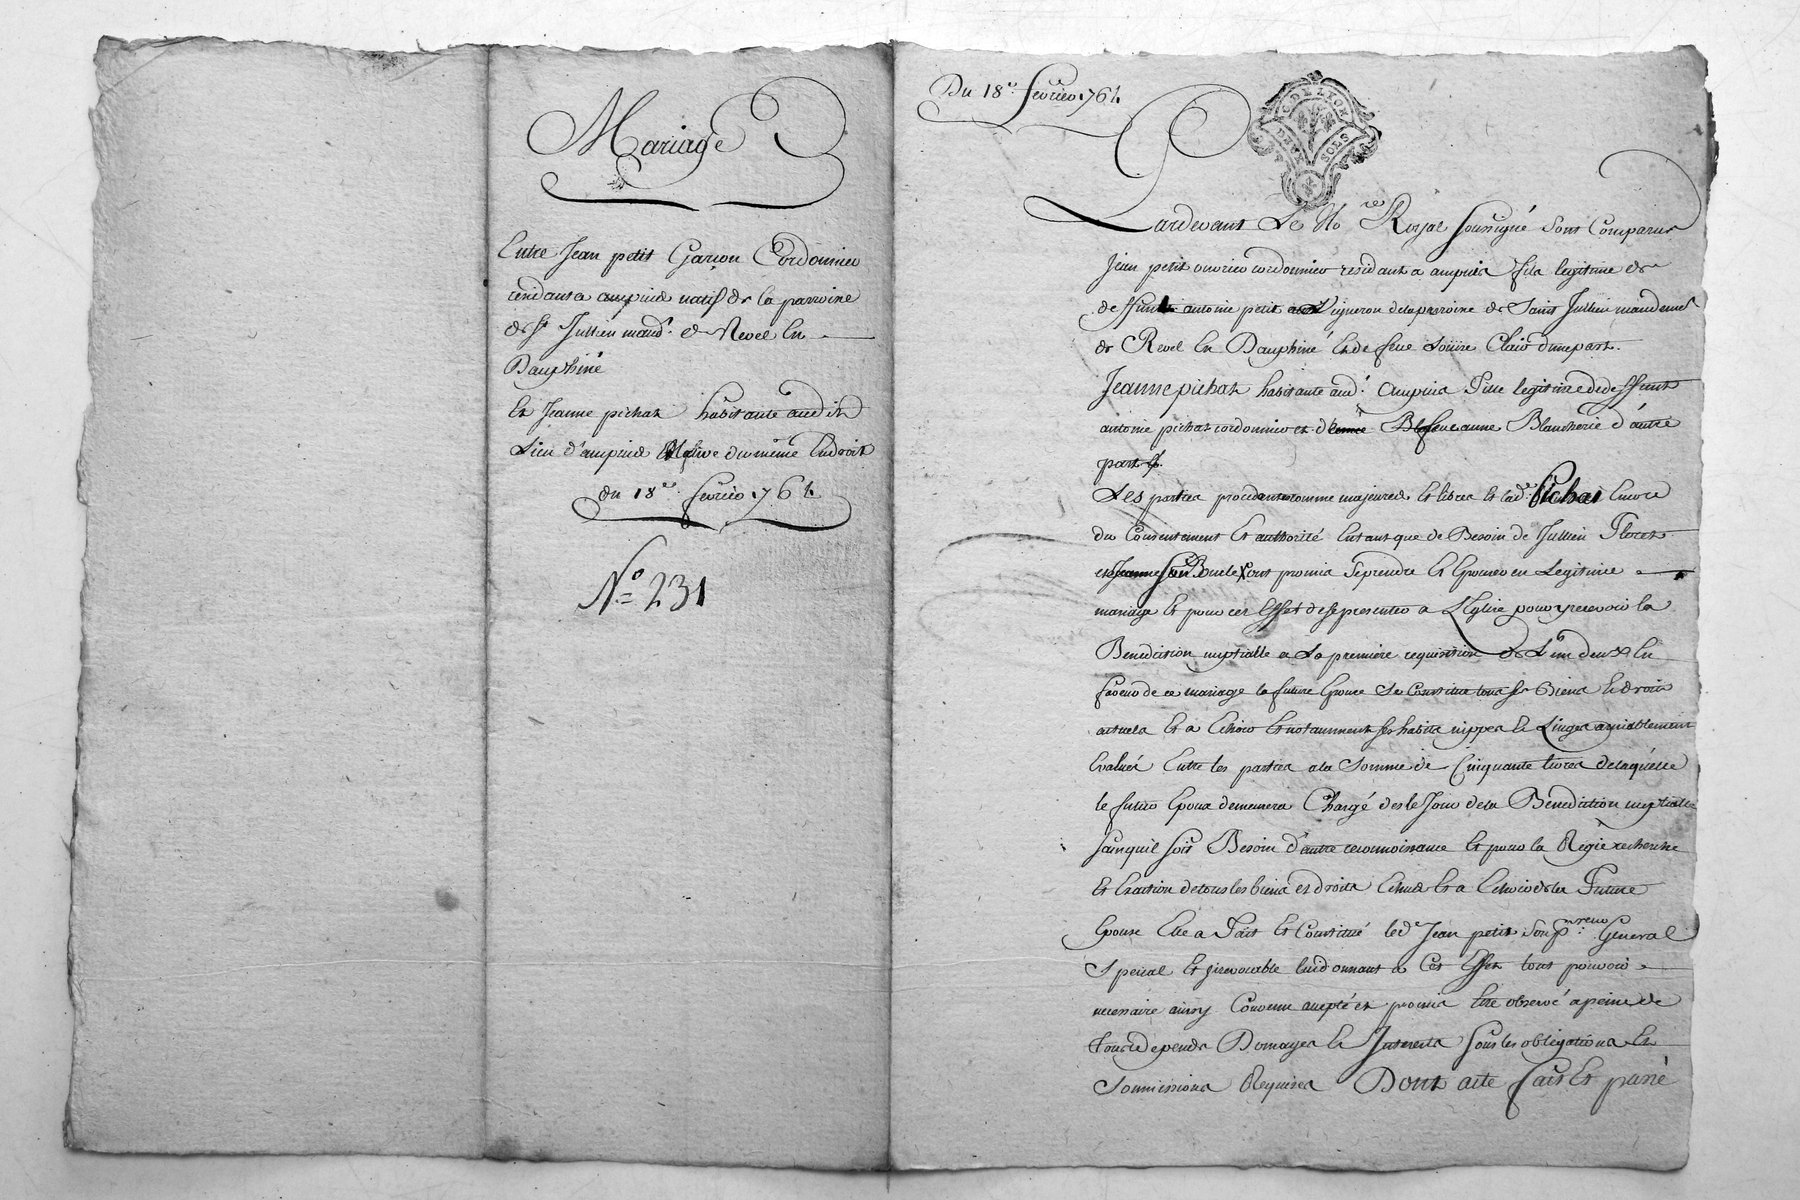 Mariage
Entre Jean petit Garçon Cordonnier
residant a ampuis natif de la parroisse
de St Jullien mand.t de Revel En
Dauphiné
Et Jeanne pichat habitante audit
Lieu d'ampuis Native du même Endroit
du 18e fevrier 1764.
No = 231
Du 18e fevrier 1764.
G. DE LYON
DEUX SOLS
Pardevant Le No.re Royal soussigné sont Comparus
jean petit ouvrier cordonnier residant a ampuis fils legitime de
de deffunt antoine petit Vigneron de la parroisse de Saint Jullien mandement
de Revel En Dauphiné Et de feue Loüise Clair d'une part.
Jeanne pichat habitante aud.t ampuis fille legitime de deffunt
antoine pichat cordonnier et de feue anne Blancherie d'autre
part
Les parties procedants comme majeures Et libres Et lad.e pichat Encore
du Consentement Et authorité Entant que de Besoin de Jullien
ont promis se prendre Et Epouser en Legitime
mariage Et pour cet Effet de se presenter a L'Eglise pour y recevoir la
Benediction nuptialle a La première requisition de L'un d'eux En
faveur de ce mariage la future Epouse Se Constitue tous ses Biens Et droits
actuels Et a Echoir Et notamment ses habits nippes Et Linges amiablement
Evalués Entre les parties a la Somme de Cinquante livres de laquelle
le futur Epoux demeurera Chargé des le Jour de la Benediction nuptialle
sans quil soit Besoin d'autre reconnoissance Et pour la Régie recherche
Et Exaction de tous les biens et droits Echus Et a Echoir de la Future
Epouse Elle a Fait Et Constitué led.t Jean petit son p.reur General
Special Et irrevocable lui donnant a Cet Effet tout pouvoir
necessaire ainsy Convenu accepté et promis Etre observé a peine de
tous depends Domages Et Interests sous les obligations Et
Soumissions Requises Dont acte fait Et passé